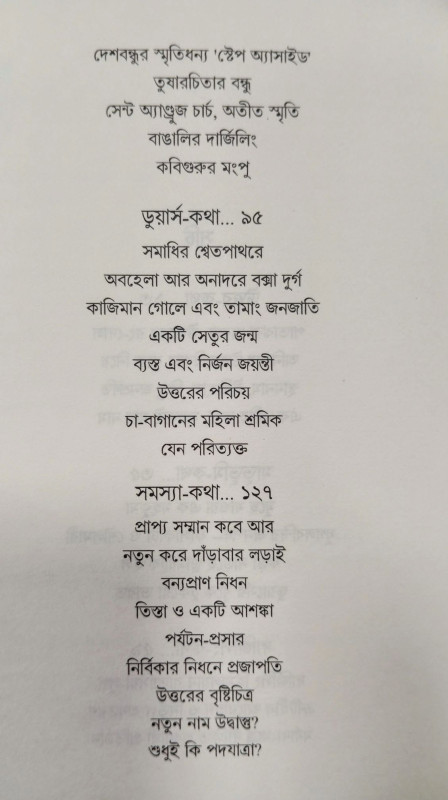 দেশবন্ধুর স্মৃতিধন্য 'স্টেপ অ্যাসাইড'
তুষারচিতার বন্ধু
সেন্ট অ্যাণ্ড্রুজ চার্চ, অতীত স্মৃতি
বাঙালির দার্জিলিং
কবিগুরুর মংপু
ডুয়ার্স-কথা... ৯৫
সমাধির শ্বেতপাথরে
অবহেলা আর অনাদরে বক্সা দুর্গ
কাজিমান গোলে এবং তামাং জনজাতি
একটি সেতুর জন্ম
ব্যস্ত এবং নির্জন জয়ন্তী
উত্তরের পরিচয়
চা-বাগানের মহিলা শ্রমিক
যেন পরিত্যক্ত
সমস্যা-কথা... ১২৭
প্রাপ্য সম্মান কবে আর
নতুন করে দাঁড়াবার লড়াই
বন্যপ্রাণ নিধন
তিস্তা ও একটি আশঙ্কা
পর্যটন-প্রসার
নির্বিকার নিধনে প্রজাপতি
উত্তরের বৃষ্টিচিত্র
নতুন নাম উদ্বাস্তু?
শুধুই কি পদযাত্রা?